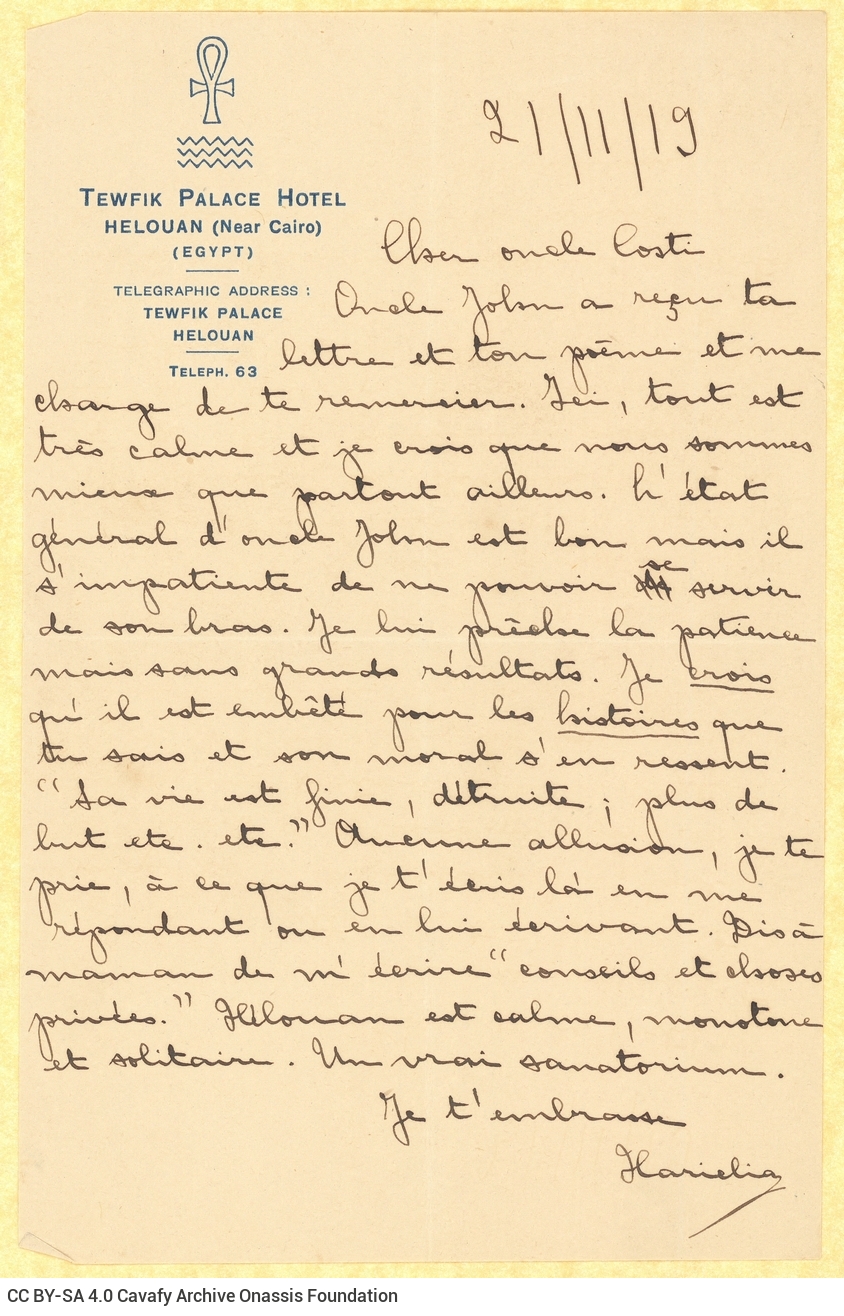 21/11/19
TEWFIK PALACE HOTEL
HELOUAN (Near Cairo)
(EGYPT)
TELEGRAPHIC ADDRESS :
TEWFIK PALACE
HELOUAN
TELEPH. 63
Cher oncle Costi
Oncle John a reçu ta
lettre et ton poème et me
charge de te remercier. Ici, tout est
très calme et je crois que nous sommes
mieux que partout ailleurs. L'état
général d'oncle John est bon mais il
s'impatiente de ne pouvoir se servir
de son bras. Je lui prêche la patience
mais sans grands résultats. Je crois
qu'il est embêté pour les histoires que
tu sais et son moral s'en ressent.
"Sa vie est finie, détruite ; plus de
but etc. etc." Aucune allusion, je te
prie, à ce que je t'écris là en me
répondant ou en lui écrivant. Dis à
maman de m'écrire "conseils et choses
privées." Hélouan est calme, monotone
et solitaire. Un vrai sanatorium.
Je t'embrasse
Hariclia
CC BY-SA 4.0 Cavafy Archive Onassis Foundation